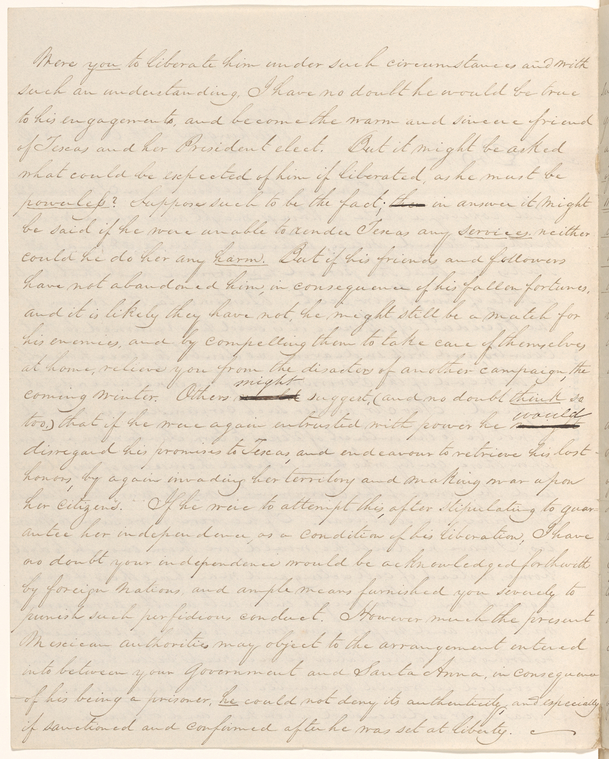 Were you to liberate him under such circumstances and with
such an understanding, I have no doubt he would be true
to his engagements, and become the warm and sincere friend
of Texas and her President elect. But it might be asked
what could be expected of him if liberated, as he must be
powerless? Suppose such to be the fact; in answer it might
be said if he were unable to render Texas any services neither
could he do her any harm. But if his friends and followers
have not abandoned him, in consequence of his fallen fortunes,
and it is likely they have not, he might still be a match for
his enemies, and by compelling them to take care of themselves
at home, relieve you from the disaster of another campaign, the
coming winter. Others might suggest, (and no doubt think so
too,) that if he were again entrusted with power he would
disregard his promises to Texas, and endeavour to retrieve his lost
honors, by again invading her territory and making war upon
her citizens. If he were to attempt this, after stipulating to guar-
antee her independence, as a condition of his liberation, I have
no doubt your independence would be acknowledged forthwith
by foreign Nations, and ample means furnished you severely to
punish such perfideous conduct. However much the present
Mexican authorities may object to the arrangement entered
into between your Government and Santa Anna, in consequence
of his being a prisoner, he could not deny its authenticity, and especially
if sanctioned and confirmed after he was set at liberty.